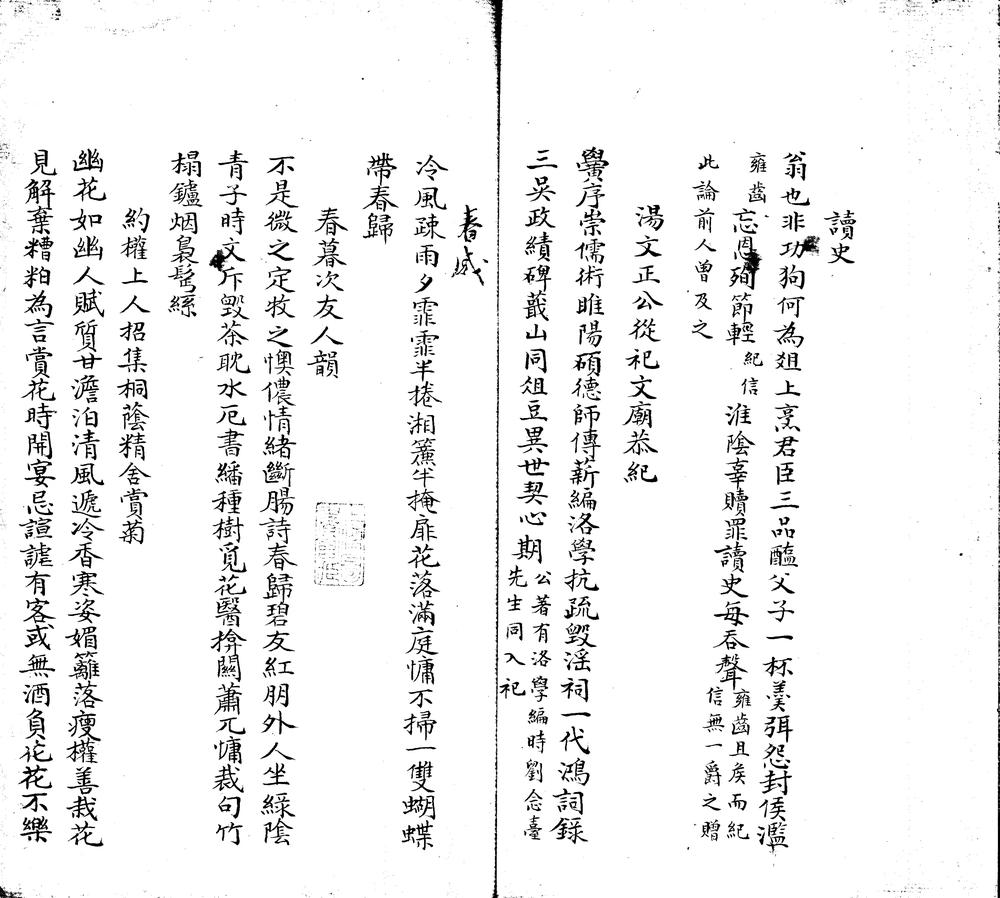 讀史
翁也非功狗何為俎上烹君臣三品醢父子一杯羹弭怨封侯濫
雍齒忘恩殉節輕紀信淮陰辜贖罪讀史每吞聲雍齒且矦而紀信無一爵之贈
此論前人曾及之
湯文正公從祀文廟恭紀
黌序崇儒術睢陽碩德師傳薪編洛學抗疏毀滛祠一代鴻詞錄
三吳政績碑蕺山同俎豆異世契心期公著有洛學編時劉念臺先生同入祀
春感
冷風疎雨夕霏霏半捲湘簾半掩扉花落滿庭慵不掃一雙蝴蝶
帶春歸
春暮次友人韻
不是微之定牧之懊儂情緒斷腸詩春歸碧友紅朋外人坐綠陰
青子時文斥毀茶耽水厄書繙種樹覓花醫揜關蕭兀慵裁句竹
榻鑪烟裊髩絲
約權上人招集桐蔭精舍賞菊
幽花如幽人賦質甘澹泊清風遞冷香寒姿媚籬落瘦權善栽花
見解棄糟粕為言賞花時開宴忌諠謔有客或無酒負花花不樂